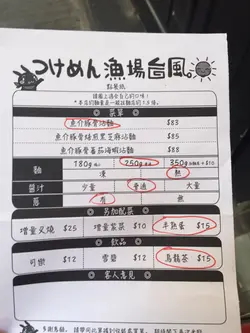 つけめん漁場台風
點餐紙
請圈上適合自己的口味!
菜單
魚介豚骨沾麵 $83
魚介豚骨焙煎黑芝麻沾麵 $85
魚介豚骨蕃茄海蝦沾麵 $88
麵 180g 250g 350g
凍 熱
醬汁 少量 普通 大量
蔥 有 無
另加配菜
增量叉燒 $25 增量紫菜 $10 半熟蛋 $15
飲品
可樂 $12 雪碧 $12 烏龍茶 $15
客人意見